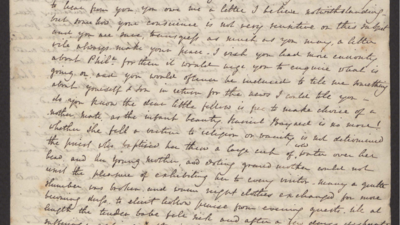 to hear from you. you owe me a letter I believe notwithstanding
but somehow your conscience is not very sensitive on this subject
and you are sure transgress as much as you may, a little
note always make your peace. I wish you had more curiosity
about Phil. for then it would urge you to enquire what is
going on and you would oftener be inclined to tell me something
about yourself & son in return for the news I could tell you
do you know the dear little fellow is free to make choice of a
mate as the infant beauty Harriet Hayward is no more!
whether she fell a victim to religion or vanity is not determined
the priest who baptised her threw a large cup of water over her
head, and her young mother and doting grand mother would not
resist the pleasure of exhibiting her to every visitor. many a gentle
slumber was broken, and warm night clothes exchanged for more
becoming dress, to elicit praise from evening guests, till at
length the tender babe fell sick and after a few days